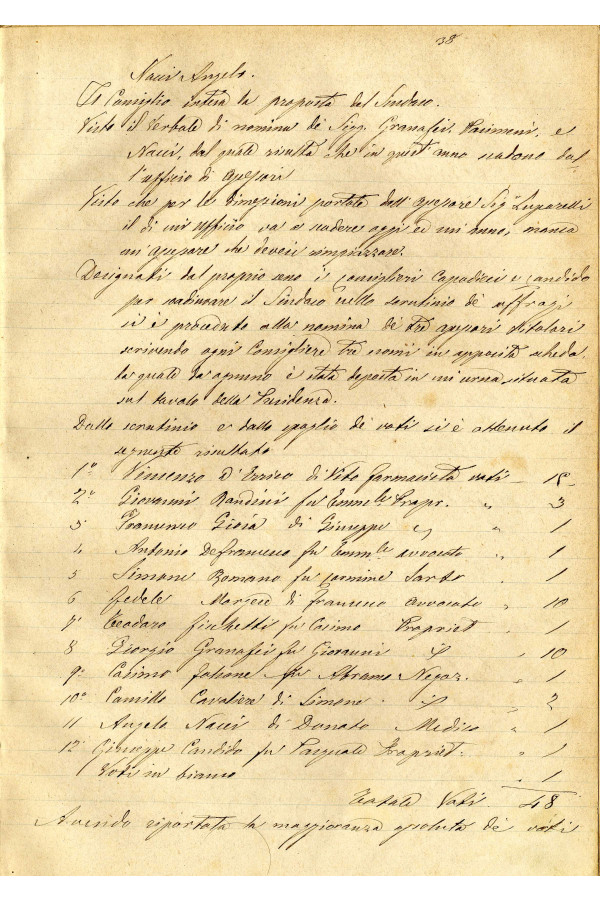 38
Nacci Angelo.
Il Consiglio intesa la proposta del Sindaco.
Visto il Verbale di nomina dei Sigg. Granafei, Paimoni, e
Nacci, dal quale risulta che in quest'anno scadono dal-
l'ufficio di assessori
Visto che per le dimissioni portate dall'assessore Sig.
il di cui ufficio va a scadere oggi ed un anno, manca
un assessore che devesi rimpiazzare.
Designati dal proprio seno i consiglieri Capodieci e Candido
per coadiuvare il Sindaco nello scrutinio dei suffragi
si è proceduto alla nomina dei tre assessori titolari
scrivendo ogni Consigliere tre nomi in apposita scheda,
la quale da ognuno è stata deposta in un'urna situata
sul tavolo della Presidenza.
Dallo scrutinio e dallo spoglio dei voti si è ottenuto il
seguente risultato
1° Vincenzo d'Errico di Vito farmacista voti - 15
2° Giovanni Bandini fu Emm.le Propr. " 3
3 Francesco Gioia di Giuseppe " 1
4 Antonio Defrancesco fu Emm.le avvocato " 1
5 Simone Romano fu Carmine Sarto " 1
6 Fedele di Francesco avvocato " 10
7° Teodoro fu Cosimo Propriet " 1
8 Giorgio Granafei fu Giovanni " 10
9° Cosimo fu Abramo Negoz. " 1
10° Camillo Cavaliere di Simone " 2
11 Angelo Nacci di Donato Medico " 1
12 Giuseppe Candido fu Pasquale Propriet. " 1
Voti in bianco " 1
Totale Voti. 48
Avendo riportata la maggioranza assoluta dei voti